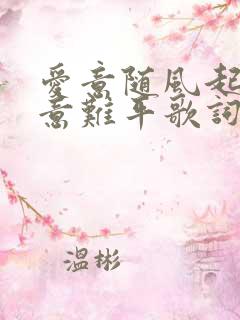 愛意随風起
意難平歌詞
溫彬